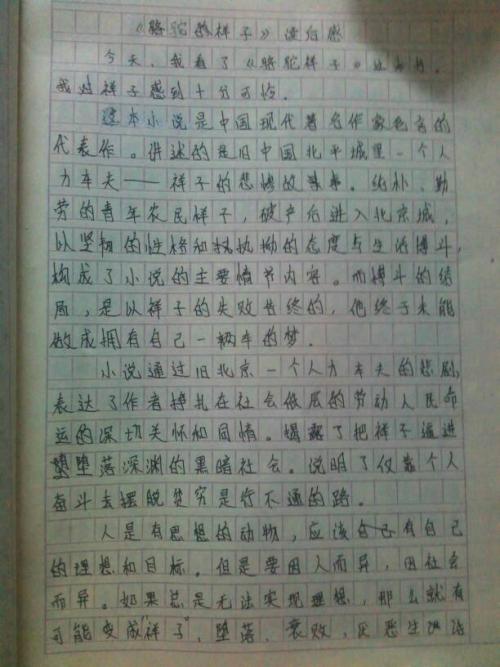 《骆驼的祥子》读后感
今天，我看了《骆驼祥子》这本书，
我对祥子感到十分可怜。
这本小说是中国现代著名作家老舍的
代表作。讲述的是旧中国北平城里一个人
力车夫——祥子的悲惨故事。纯朴、勤
劳的青年农民祥子，破产后进入北京城，
以坚韧的性格和执拗的态度与生活搏斗，
构成了小说的主要情节内容。而搏斗的结
局，是以祥子的失败告终的，他终于未能
做成拥有自己一辆车的梦。
小说通过旧北京一个人力车夫的悲剧，
表达了作者挣扎在社会低层的劳动人民命
运的深切关怀和同情。揭露了把祥子逼进
堕落深渊的黑暗社会。说明了仅靠个人
奋斗去摆脱贫穷是行不通的路。
人是有思想的动物，应该有自己
的理想和目标。但是要因人而异，因社会
而异。如果总是无法实现理想，那么就有
可能变成"祥子"，堕落、衰败，厌恶生活